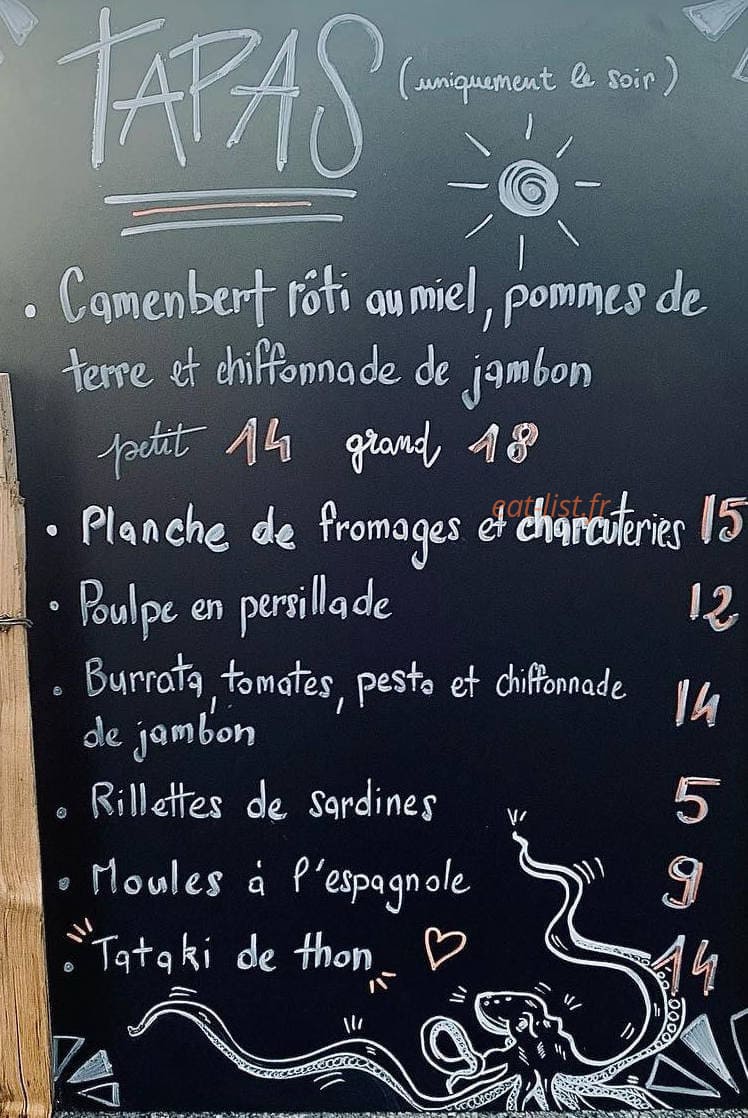 TAPAS (uniquement le soir)
• Camenbert rôti au miel, pommes de
terre et chiffonnade de jambon
petit 14 grand 18
eat-list.fr
• Planche de fromages et charcuteries 15
• Poulpe en persillade 12
• Burrata, tomates, pesto et chiffonnade
de jambon 14
• Rillettes de sardines 5
• Moules à l'espagnole 9
• Tataki de thon 14